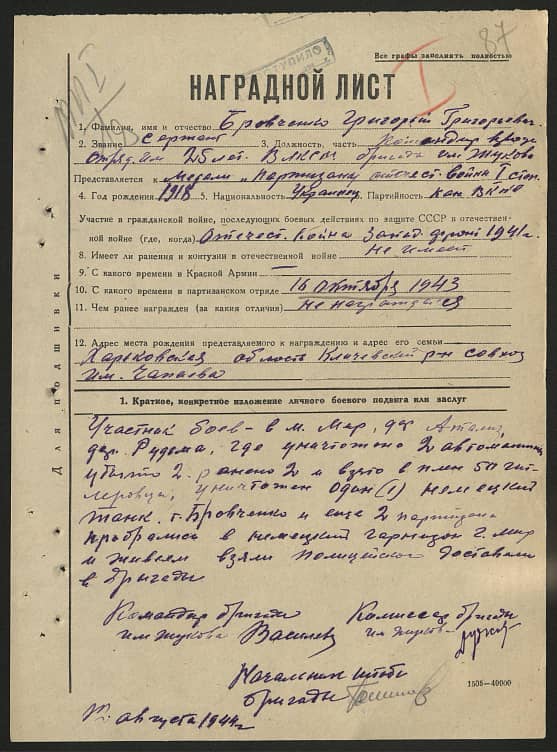 87
Все графы заполнять полностью
НАГРАДНОЙ ЛИСТ
1. Фамилия, имя и отчество Бровченко Григорий Григорьевич
2. Звание Сержант 3. Должность, часть Командир взвода
отряда им 25 лет. ВЛКСМ бригада им. Жукова
Представляется к Медали "Партизану отечест. война I степ.
4. Год рождения 1918 5. Национальность Украинец 6. Партийность кан. ВКПб
Участие в гражданской войне, последующих боевых действиях по защите СССР и отечествен-
ной войне (где, когда) Отечест. война Запад. фронт 1941г.
8. Имеет ли ранения и контузии в отечественной войне не имеет
9. С какого времени в Красной Армии —
10. С какого времени в партизанском отряде 16 октября 1943
11. Чем ранее награжден (за какия отличия) не награждался
12. Адрес места рождения представляемого к награждению и адрес его семьи
Харьковская область р-н совхоз
им. Чапаева
Для подшивки
1. Краткое, конкретное изложение личного боевого подвига или заслуг
Участник боев - в м. Мир, дер.
дер. Рудьма, где уничтожено 2 автомашины
убито 2 ранено 2 и взято в плен 50 гит-
леровцев, уничтожен один (1) немецкий
танк. т. Бровченко и еще 2 партизана
пробрались в немецкий гарнизон г. Мир
и живьем взяли полицейского доставили
в бригаду
Командир бригады Комиссар бригады
им Жукова Василев им Жукова
Начальник штаба
бригады
1505—40000
августа 1944г.